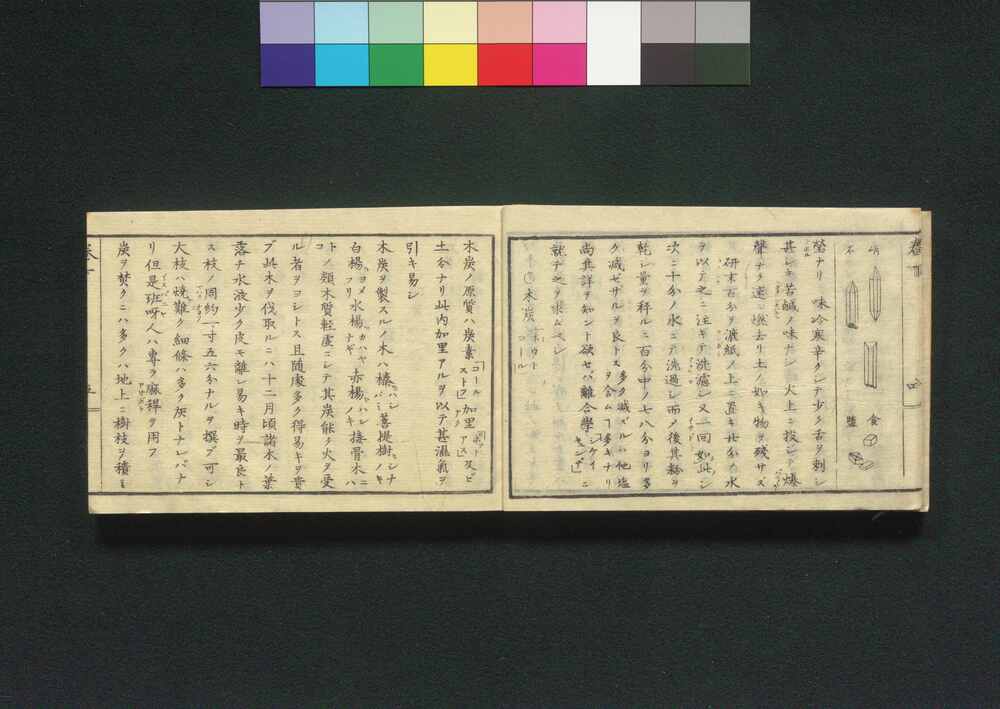 食
鹽
瑩ナリ 味冷寒辛クシテ少ク舌ヲ刺シ
甚シキ苦鹹ノ味ナシ 火上ニ投シテ爆
聲ナク速ニ燃去リ土ノ如キ物ヲ殘サズ
研末百分ヲ漉紙ノ上ニ置キ廿分ノ水
ヲ以テ之ニ注ギテ洗濾シ又一回如此シ
次ニ十分ノ水ニテ洗過シ而ノ後其粉ヲ
乾シ量ヲ秤ルニ百分中ノ七八分ヨリ多
ク減ゼザルヲ良トス 多ク減ズルハ他塩ヲ含ムㄱ多キナリ
尚其詳ヲ知ント欲セバ離合學「ケイキュンデ」ニ
就テ之ヲ求ムベシ
○木炭
コール
木炭ノ原質ハ炭素「コールストフ」加里 及ビ
土分ナリ此内加里アルヲ以テ甚濕氣ヲ
引キ易シ
木炭ヲ製スルノ木ハ榛ハシバミ菩提樹シナノキ
白楊 水楊カハヤナギ 赤楊ハンノキ 接骨木ニハトコノ類木質軽虚ニシテ其炭能ク火ヲ受
ル者ヲヨシトス且随處多ク得易キヲ貴
ブ此木ヲ伐取ルニハ十二月頃諸木ノ葉
落チ水液少ク皮モ離レ易キ時ヲ最良ト
ス枝ノ周約一寸五六分ナルヲ撰ブ可シ
大枝ハ焼難ク細條ハ多ク灰トナレバナ
リ但是班呀人ハ專ラ麻稈ヲ用フ
炭ヲ焚クニハ多クハ地上ニ樹枝ヲ積ミ